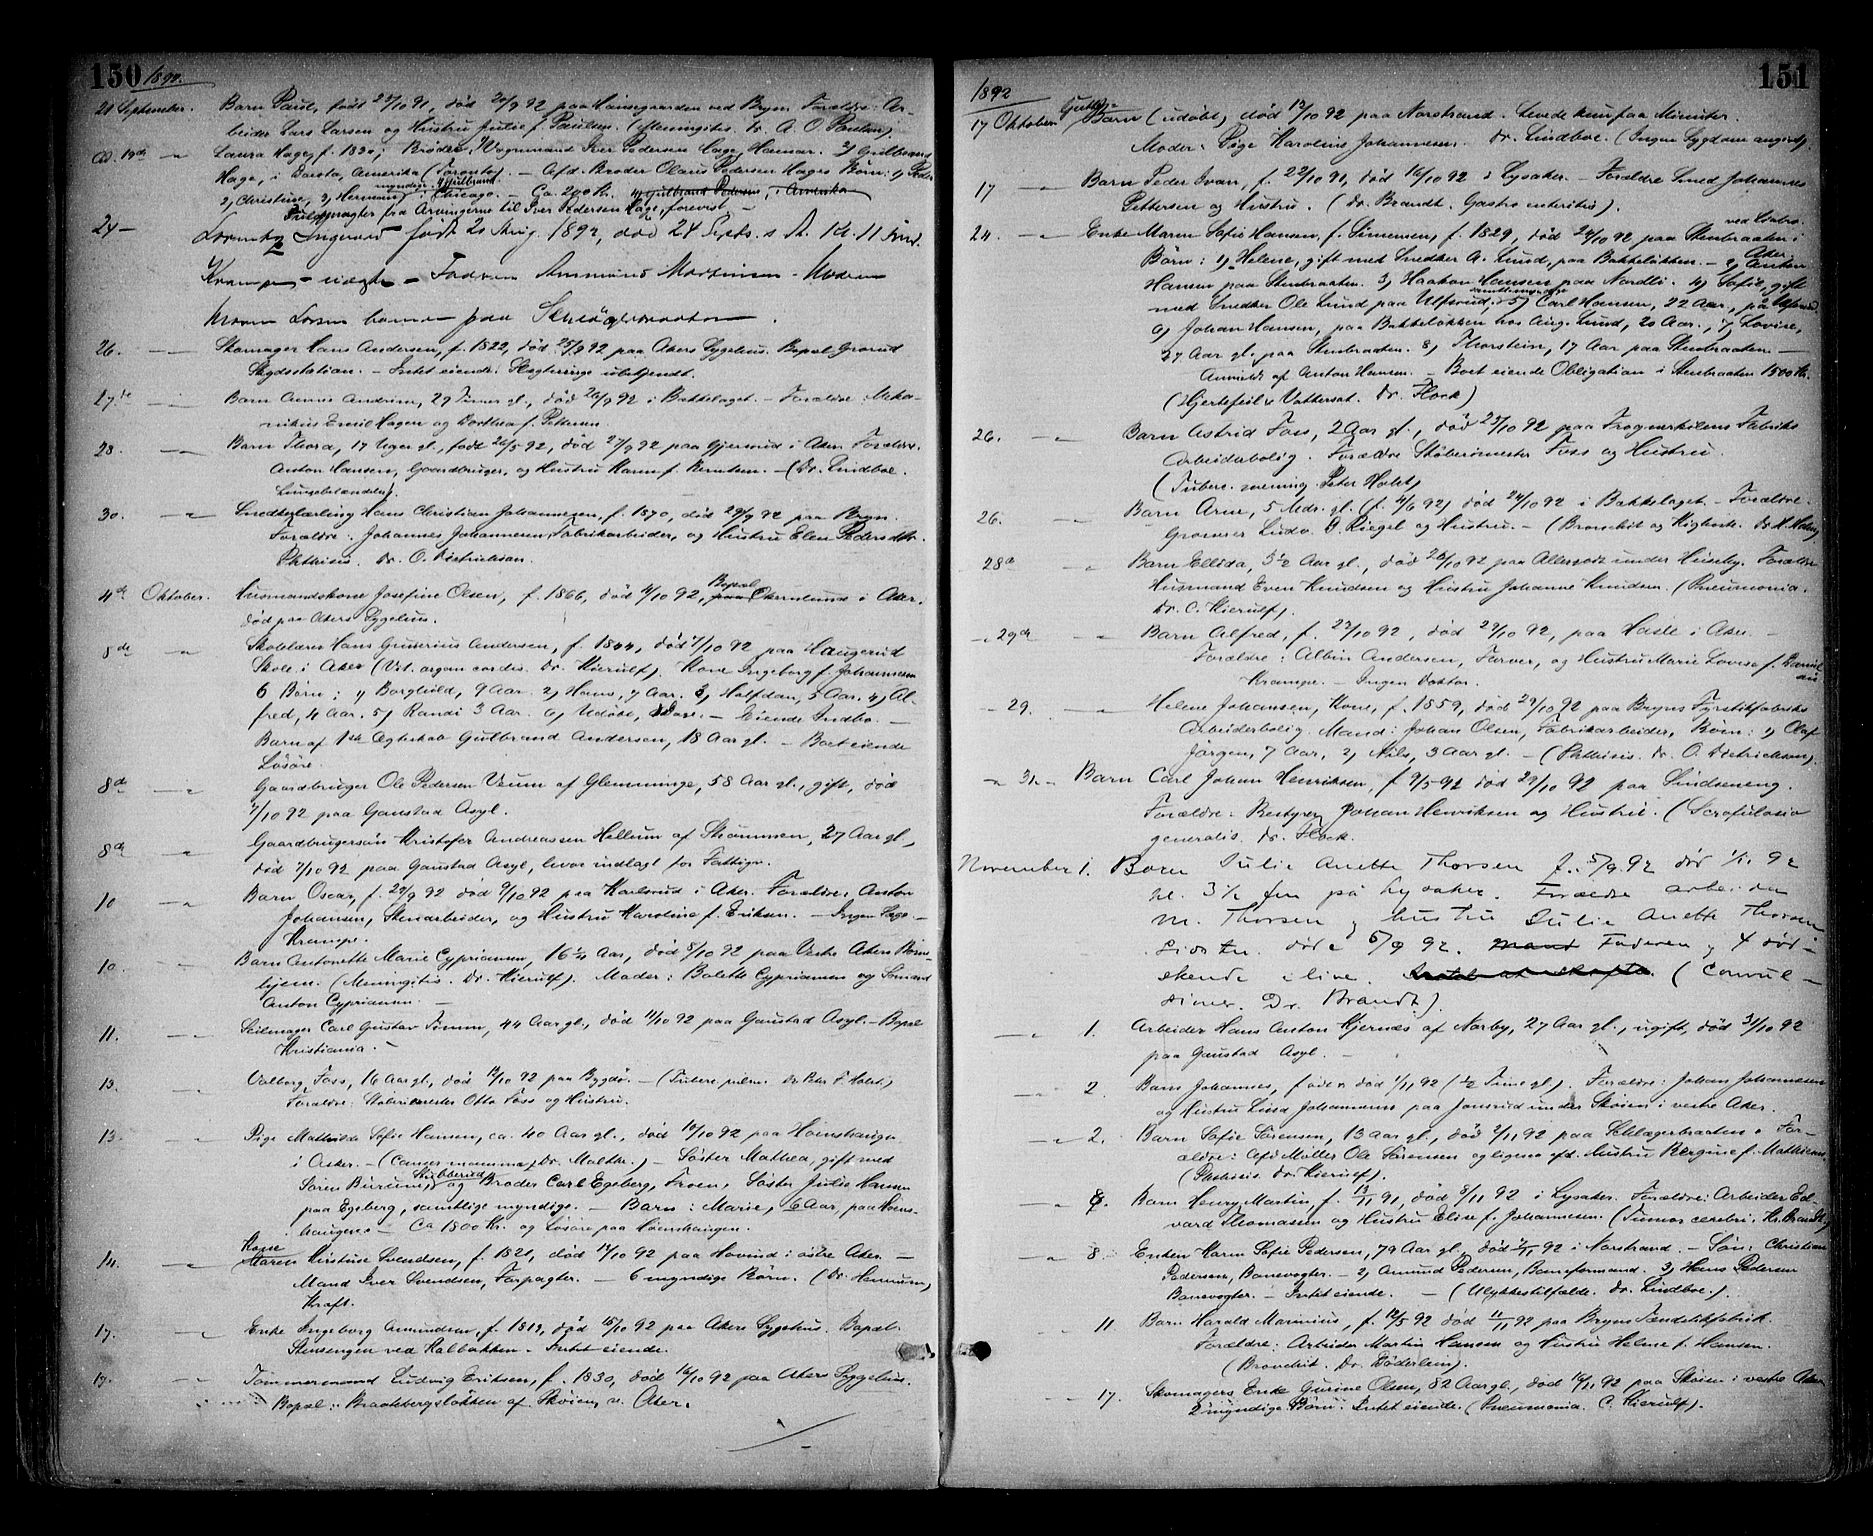 150 1892.
21 September. Barn Paul, født 27/10 91, død 20/9 92 paa Hansegaarden ved Bryn. Forældre: Ar-
beider Lars Larsen og Hustru Julie f. Paulsen. (Meningitis. Dr. A. O Paulsen)
Laura Hage, f. 1830; Brødre: Vognmand Iver Pedersen Hage, Hamar. 2) Gulbrand
Hage, i Dacota, Amerika (Toronto). – Afd. Broder Olaus Pedersen Hages Børn: 1) Peder
myndige. 4 Gulbrand
2, Christine, 3, Herman, i Chicago. – Ca. 200 Kr. 4, Gulbrand Pedersen, i Amerika
Fuldmagter fra Arvingerne til Iver Pedersen Hage, forevist. –
24 – Ingvard født 2 Aug. 1892, død 24 Septb. s. A. Kl. 11 Fmd.
Krampe – uægte – Faderen Ammund Martinsen – Moderen
Maren Larsen paa
26. – Skomager Hans Andersen, f. 1822, død 25/9 92 paa Akers Sygehus. Bopæl Grorud
Lægdsstation. – Intet eiende. Slægtninge ubekjendt.
Barn Annie Andrine, 29 Timer gl., død 26/9 92 i Bækkelaget. – Forældre: Meka-
nikus Emil Hagen og Dorthea f. Pettersen.
28. – Barn Thora, 17 Uger gl., født 26/5 92, død 27/9 92 paa Gjersrud i Aker. Forældre:
Anton Hansen, Gaardbruger, og Hustru Karen f. Berntsen. – (Dr. Lindboe.
Lungebetændelse).
30. – Snedkerlærling Hans Christian Johannesen, f. 1870, død 29/9 92 paa Bryn.
Forældre: Johannes Johannesen, Fabrikarbeider, og Hustru Elen Pedersdtr.
Phthisis. Dr. O. Dietrichson.
4de Oktober. Husmandskone Josefine Olsen, f. 1866, død 4/10 92, Bopæl paa Økernlund i Aker.
død paa Akers Sygehus.
8de – Skolelærer Hans Gunerius Andersen, f. 1844, død 7/10 92 paa Haugerud
Skole i Aker (Vit. organ. cordis. Dr. Kierulf). Kone Ingeborg f. Johannesen
6 Børn: 1) Borghild, 9 Aar. 2) Hans, 7 Aar. 3) Halfdan, 5 Aar. 4) Al-
fred, 4 Aar. 5) Randi 3 Aar. 6) Udøbt. – Eiende Indbo. –
Barn af 1ste Ægteskab Gulbrand Andersen, 18 Aar gl. – Boet eiende
Løsøre.
8de – Gaardbruger Ole Pedersen Veum af Glemminge, 58 Aar gl., gift, død
7/10 92 paa Gaustad Asyl.
8de – Gaardbrugersøn Kristofer Andreassen Hellum af Strømmen, 27 Aar gl.,
død 7/10 92 paa Gaustad Asyl, hvor indlagt for Fattigv.
10 – Barn Oscar, f. 29/9 92 død 9/10 92 paa Karlsrud i Aker. Forældre: Anton
Johansen, Stenarbeider, og Hustru Karoline f. Eriksen. – Ingen Læge –
Krampe.
10. – Barn Antonette Marie Cyprianssen, 16 1/4 Aar, død 8/10 92 paa Vestre Akers Børne-
hjem. (Meningitis. Dr. Kierulf). Moder: Bolette Cypriansen og Sømand
Anton Cypriansen. –
11. – Seilmager Carl Gustav Timm, 44 Aar gl., død 11/10 92 paa Gaustad Asyl. – Bopæl
Kristiania. –
13. – Valborg Foss, 16 Aar gl., død 12/10 92 paa Bygdø. – (Tuberc. pulm. Dr Peter F. Holst)
Forældre: Støberimester Otto Foss og Hustru.
13. – Pige Mathilde Sofie Hansen, ca. 40 Aar gl., død 10/10 92 paa Hønshaugen
i Asker. – (Cancer mamma, Dr. Malthe.) – Søster Mathea, gift med
Søren Burum, Stubberud og Broder Carl Egeberg, Froen, Søster Julie Hansen
paa Egeberg, samtlige myndige. – Barn: Marie, 6 Aar, paa Høns-
haugen. – Ca 1800 Kr. og Løsøre paa Hønshaugen.
14. – Kone Maren Kirstine Svendsen, f. 1821, død 14/10 92 paa Hovind i østre Aker. –
Mand Iver Svendsen, Forpagter. – 6 myndige Børn. (Dr. Hannum)
Kræft.
17. – Enke Ingeborg Amundsen, f. 1819, død 15/10 92 paa Akers Sygehus. Bopæl.
Stensengen ved Kalbakken – Intet eiende.
17. – Tømmermand Ludvig Eriksen, f. 1830, død 16/10 92 paa Akers Sygehus.
Bopæl: Braatebergsløkken af Skøien, v. Aker.
1892 151
17 Oktober Guttebarn (udøbt) død 13/10 92 paa Norstrand. Levede kun faa Minuter.
Moder: Pige Karoline Johannesen. Dr. Lindboe. (Ingen Sygdom angivet).
17 – Barn Peder Ivan, f. 23/10 91, død 16/10 92 i Lysaker. – Forældre Smed Johannes
Pettersen og Hustru. (Dr. Brandt. Gastro enteritis).
24. – Enke Maren Sofie Hansen, f. Simensen, f. 1829, død 24/10 92 paa Stenbraaten i Aker
ved Ljabro.
Børn: 1) Helene, gift med Snedker A. Lund, paa Bakkeløkken. – 2) Anton
Hansen paa Stenbraaten. 3) Haakon Hansen paa Nordli. 4) Sofie, gift
med Snedker Ole Lund paa Ulfsrud, samtl. myndige 5) Carl Hansen, 22 Aar, på Ulfsrud.
6) Johan Hansen, paa Bakkeløkken hos Aug. Lund, 20 Aar., 7) Lovise,
27 Aar gl. paa Stenbraaten. 8) Thorstein, 17 Aar paa Stenbraaten. –
Anmeldt af Anton Hansen. – Boet eiende Obligation i Stenbraaten 1500 Kr.
(Hjertefeil & Vattersot. Dr. Flock)
26. – Barn Astrid Foss, 2 Aar gl., død 25/10 92 paa Frognerkilens Fabriks
Arbeiderbolig. Forældre Støberimester Foss og Hustru.
(Tuberc. mening. Peter Holst)
26. – Barn Arne, 5 Mdr. gl. (f. 4/6 92) død 24/10 92 i Bækkelaget. – Forældre.
Grosserer Ludv. D. Riegel og Hustru. – (Bronchit og Kighoste. Dr. K. Holmes)
28de – Barn Ellida, 3 1/2 Aar gl., død 26/10 92 paa under Huseby. Forældre
Husmand Even Knudsen og Hustru Johanne Knudsen. (Pneumonia.
Dr. C. Kierulf).
29de – Barn Alfred, f. 22/10 92, død 29/10 92, paa Hasle i Aker. –
Forældre: Albin Andersen, Farver, og Hustru Marie Lovise f. Daniel-
sen
Krampe. – Ingen Doktor.
29. – Helene Johansen, Kone, f. 1859, død 29/10 92 paa Bryns Fyrstikfabriks
Arbeiderbolig. Mand: Johan Olsen, Fabrikarbeider, Børn: 1) Olaf
Jørgen, 7 Aar, 2) Nils, 3 Aar gl. – (Phthisis. Dr. O. Dietrichson).
31 – Barn Carl Johan Henriksen, f 9/5 92 død 29/10 92 paa Sindseneng.
Forældre: Bestyrer Johan Henriksen og Hustru. (Scrofulosis
generalis. Dr. Flock.
November 1. Barn Julie Anette Thorsen f. 5/9 92 død 1/11 92
kl. 3 1/2 fm på Lysaker. Forældre arbeider
M. Thorsen og hustru Julie Anette Thorsen
Sidste døde 5/9 92. Mand Faderen og 4 sød-
skende i live. (Convul-
sioner, Dr. Brandt).
1. Arbeider Hans Anton Kjernæs af Narby, 27 Aar gl., ugift, død 31/10 92
paa Gaustad Asyl. –
2. Barn Johannes, født & død 1/11 92 (1/2 Time gl). Forældre: Johan Johannesen
og Hustru Lina Johannesen paa Jonsrud under Skøien i vestre Aker.
2. Barn Sofie Sørensen, 13 Aar gl., død 2/11 92 paa Schlægerbraaten. For-
ældre: Afd. Møller Ole Sørensen og ligeså afd. Hustru Bergine f. Mathiesen
(Phthisis. Dr. Kierulf).
8. Barn Henry Martin, f. 13/11 91, død 8/11 92 i Lysaker. Forældre: Arbeider Ed-
vard Thomassen og Hustru Elise f. Johannesen. (Tumor cerebri. Hr. Brandt)
8. Enken Karen Sofie Pedersen, 79 Aar gl., død 5/11 92 i Norstrand. – Søn: Christian
Pedersen, Banevogter. – 2) Amund Pedersen, Baneformand. 3) Hans Pedersen
Banevogter. – Intet eiende. – (Ulykkestilfælde. Dr. Lindboe.)
11. Barn Harald Marinius, f. 12/5 92 død 11/11 92 paa Bryns Tændstikfabrik.
Forældre: Arbeider Martin Hansen og Hustru Helene f. Hansen.
(Bronchit. Dr. Döderlein).
17. Skomagers Enke Gurine Olsen, 82 Aar gl., død 16/11 92 paa Skøien i vestre Aker
2 myndige Børn. Intet eiende. (Pneumonia. C. Kierulf).